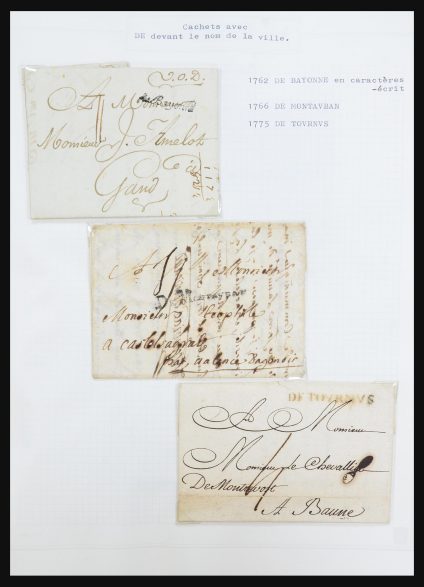 Cachets avec
DE devant le nom de la ville.
1762 DE BAYONNE en caractères
-écrit
1766 DE MONTAVBAN
1775 DE TOVRNVS
A Monsieur
Monsieur J. Amelot
Gand
A
Monsieur
a castelsagrat
par valence Dagenois
DE TOVRNVS
A Monsieur
Monsieur de Chevallier
De Montrevort
A Baune